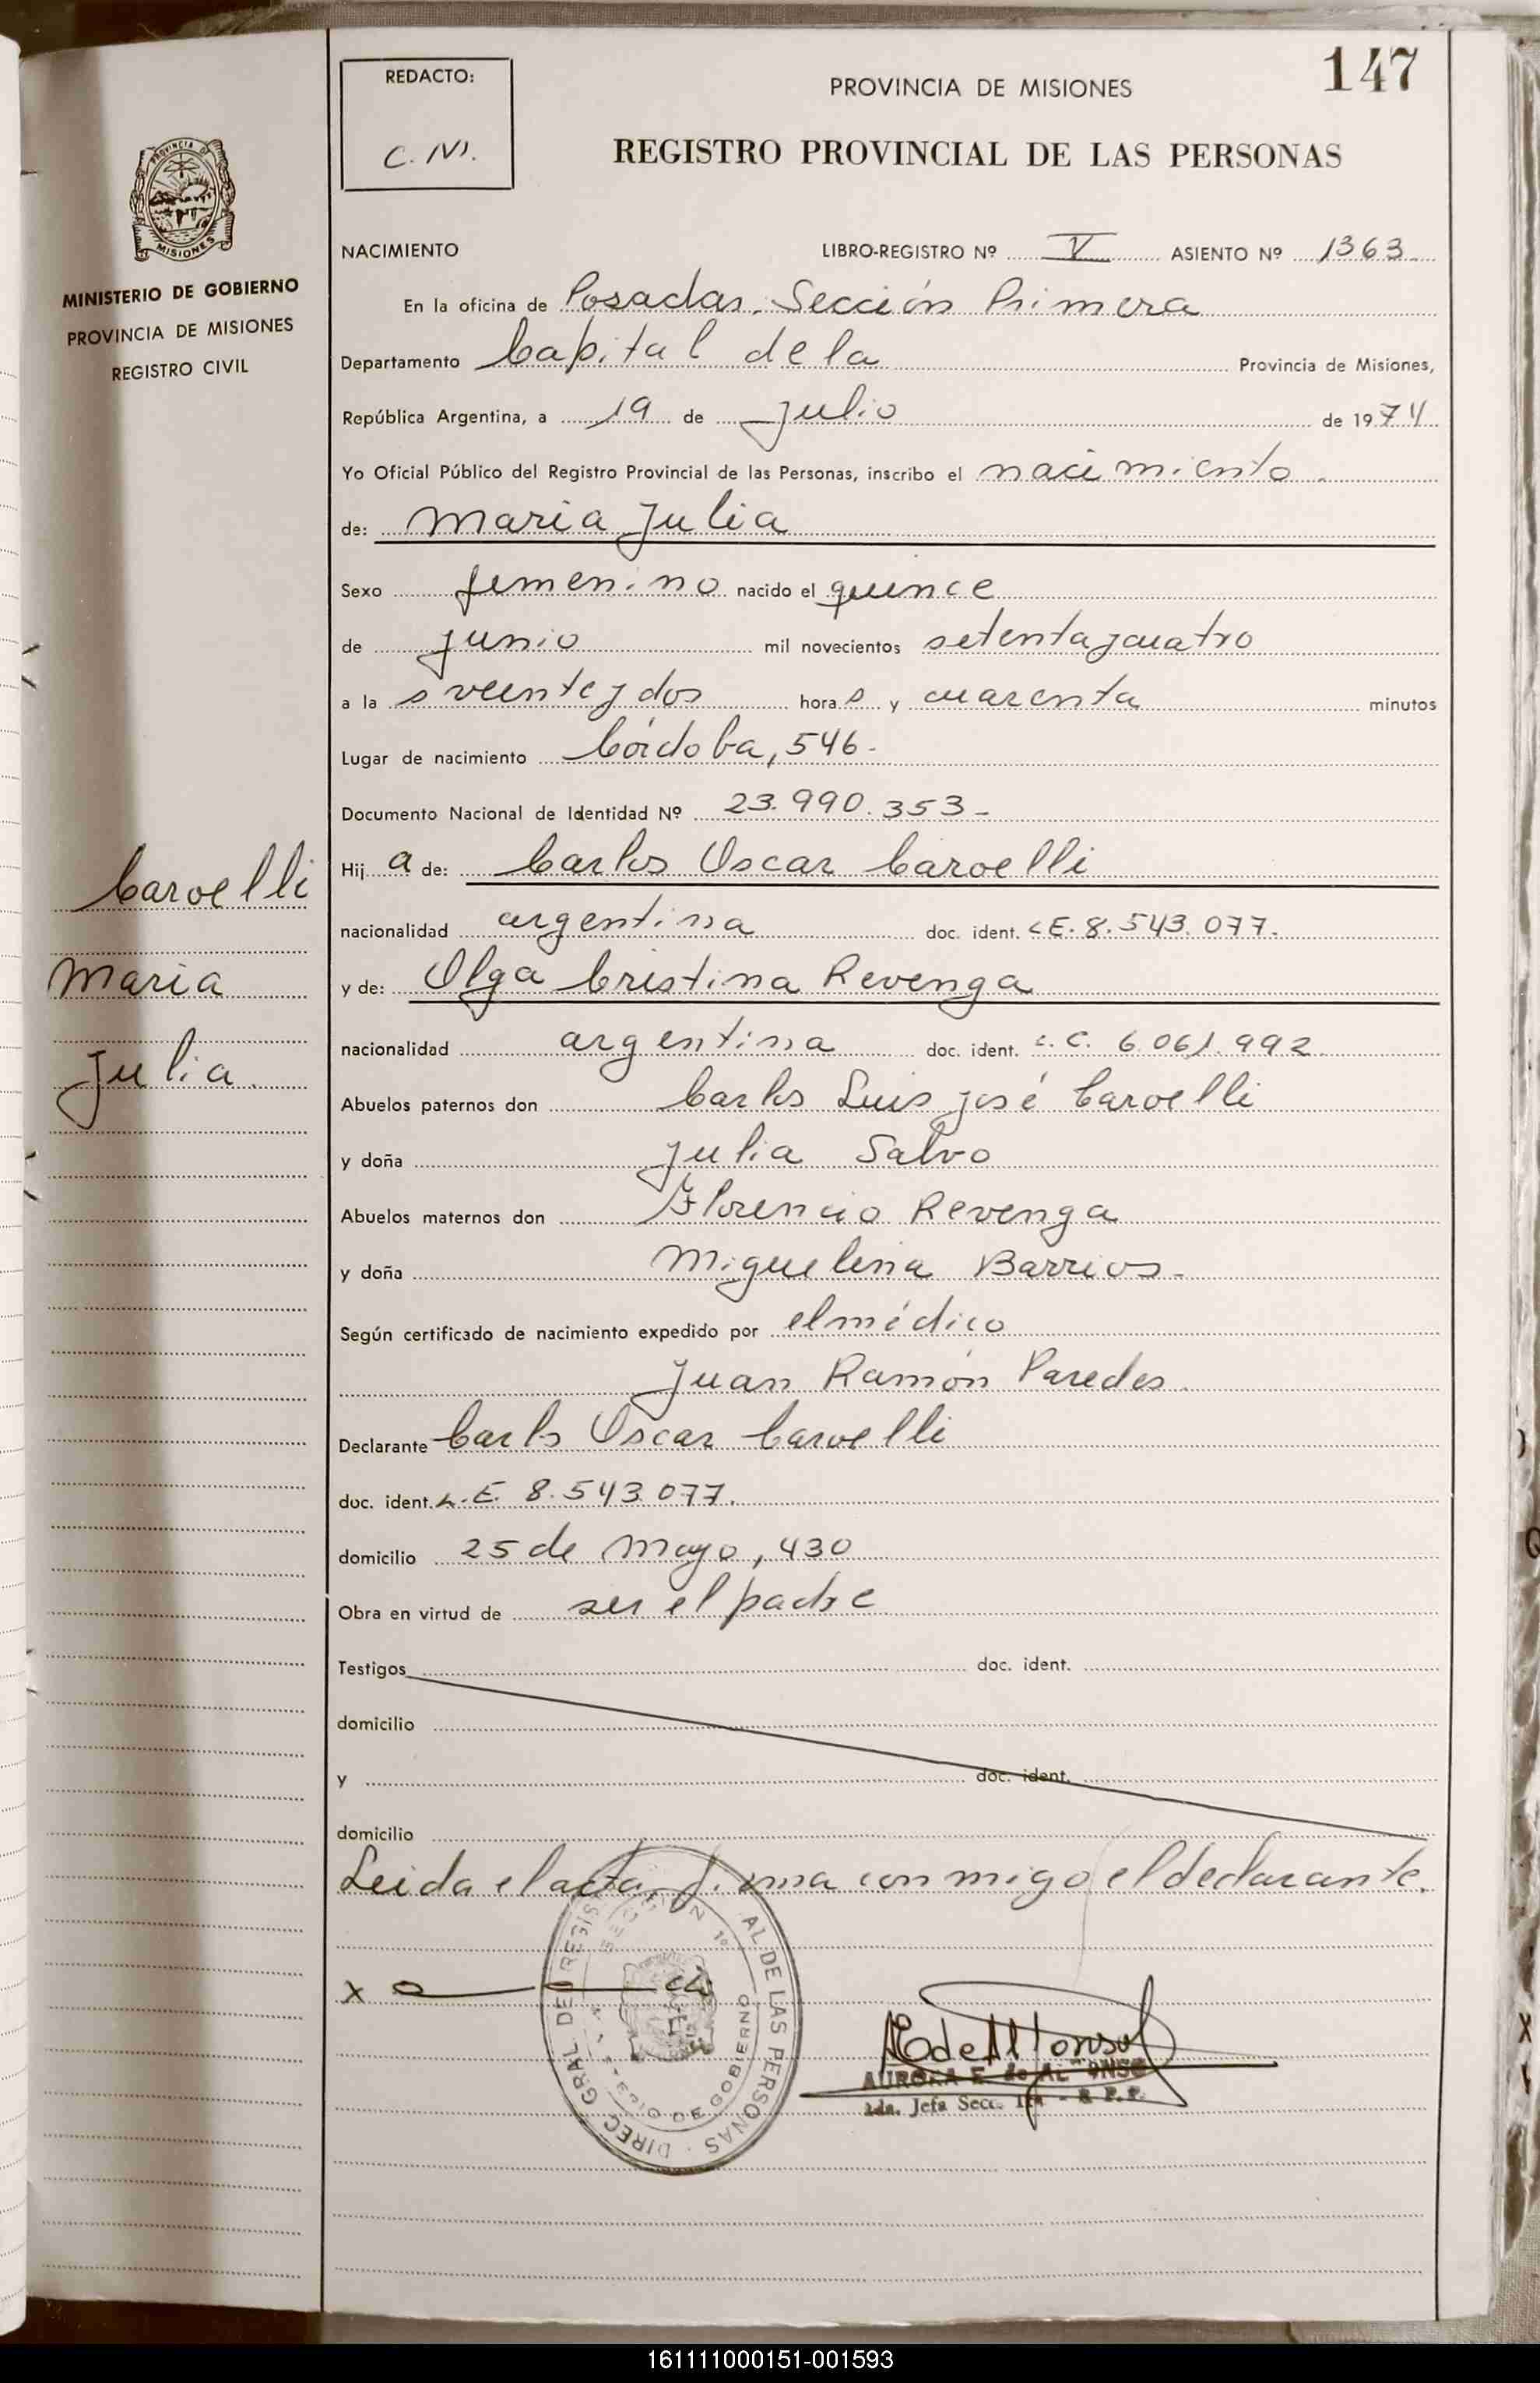 147
REDACTO:
C. M.
PROVINCIA DE MISIONES
REGISTRO PROVINCIAL DE LAS PERSONAS
PROVINCIA DE
MISIONES
MINISTERIO DE GOBIERNO
PROVINCIA DE MISIONES
REGISTRO CIVIL
NACIMIENTO LIBRO-REGISTRO Nº V ASIENTO Nº 1363
En la oficina de Posadas, Sección Primera
Departamento Capital de la Provincia de Misiones,
República Argentina, a 19 de Julio de 1974
Yo Oficial Público del Registro Provincial de las Personas, inscribo el nacimiento
de: Maria Julia
Sexo femenino nacido el quince
de junio mil novecientos setenta y cuatro
a la s veinte y dos hora s y cuarenta minutos
Lugar de nacimiento Córdoba, 546-
Documento Nacional de Identidad Nº 23.990.353-
Hij a de: Carlos Oscar Caroelli
nacionalidad argentina doc. ident. L.E. 8.543.077.
y de: Olga Cristina Revenga
nacionalidad argentina doc. ident. L.C. 6.061.992
Abuelos paternos don Carlos Luis José Caroelli
y doña Julia Salvo
Abuelos maternos don Florencio Revenga
y doña Miguelina Barrios-
Según certificado de nacimiento expedido por el médico
Juan Ramón Paredes
Declarante Carlos Oscar Caroelli
doc. ident. L.E. 8.543.077.
domicilio 25 de Mayo, 430
Obra en virtud de ser el padre
Testigos doc. ident.
domicilio
y doc. ident.
domicilio
Leida el acta, firma conmigo el declarante.
Caroelli
Maria
Julia.
x
DIREC. GRAL. DE REGIS AL DE LAS PERSONAS
SECCION 1º
DE GOBIERNO
AEdeAlfonso
AURORA E. de ALFONSO
2da. Jefa Secc. 1ra - R. P. P.
161111000151-001593